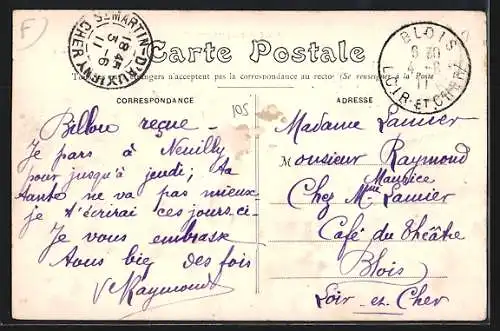 F
105
ST MARTIN-D'AUXIGNY
18 45
3 - 6
11
CHER
BLOIS
6 30
4 - 6
11
LOIR-ET-CHER
Carte Postale
Tous les pays étrangers n'acceptent pas la correspondance au recto (Se renseigner à la Poste
CORRESPONDANCE
ADRESSE
Billou reçue -
Je pars à Neuilly
pour jusqu'à jeudi; ta
tante ne va pas mieux
je t'écrirai ces jours-ci-
Je vous embrasse
tous bien des fois
Raymond
Madame Lanier
Monsieur Raymond
Maurice
Chez Mme Lanier
Café du théâtre
Blois
Loir-et-Cher